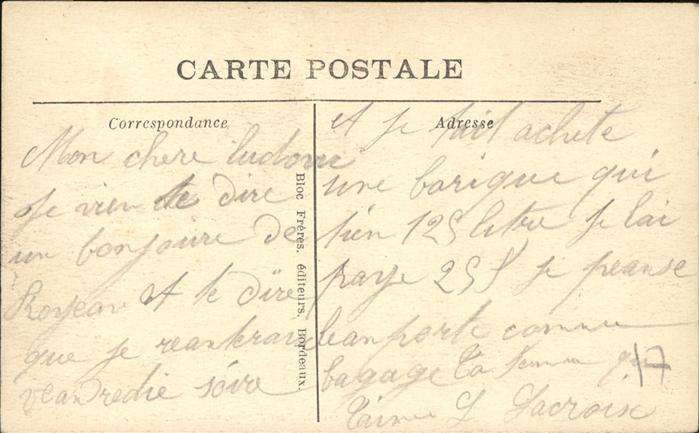 CARTE POSTALE
Correspondance
Mon chere ludovic
je vien te dire
un bonjoire de
Royean et te dire
que je reantrerai
veandredie soire
Bloc Frères, éditeurs, Bordeaux.
Adresse
et je tait achete
une barique qui
tien 125 litre je lai
paye 25 f je peanse
leanporte comme
bagage ta femme qui
taime L Lacroix
17